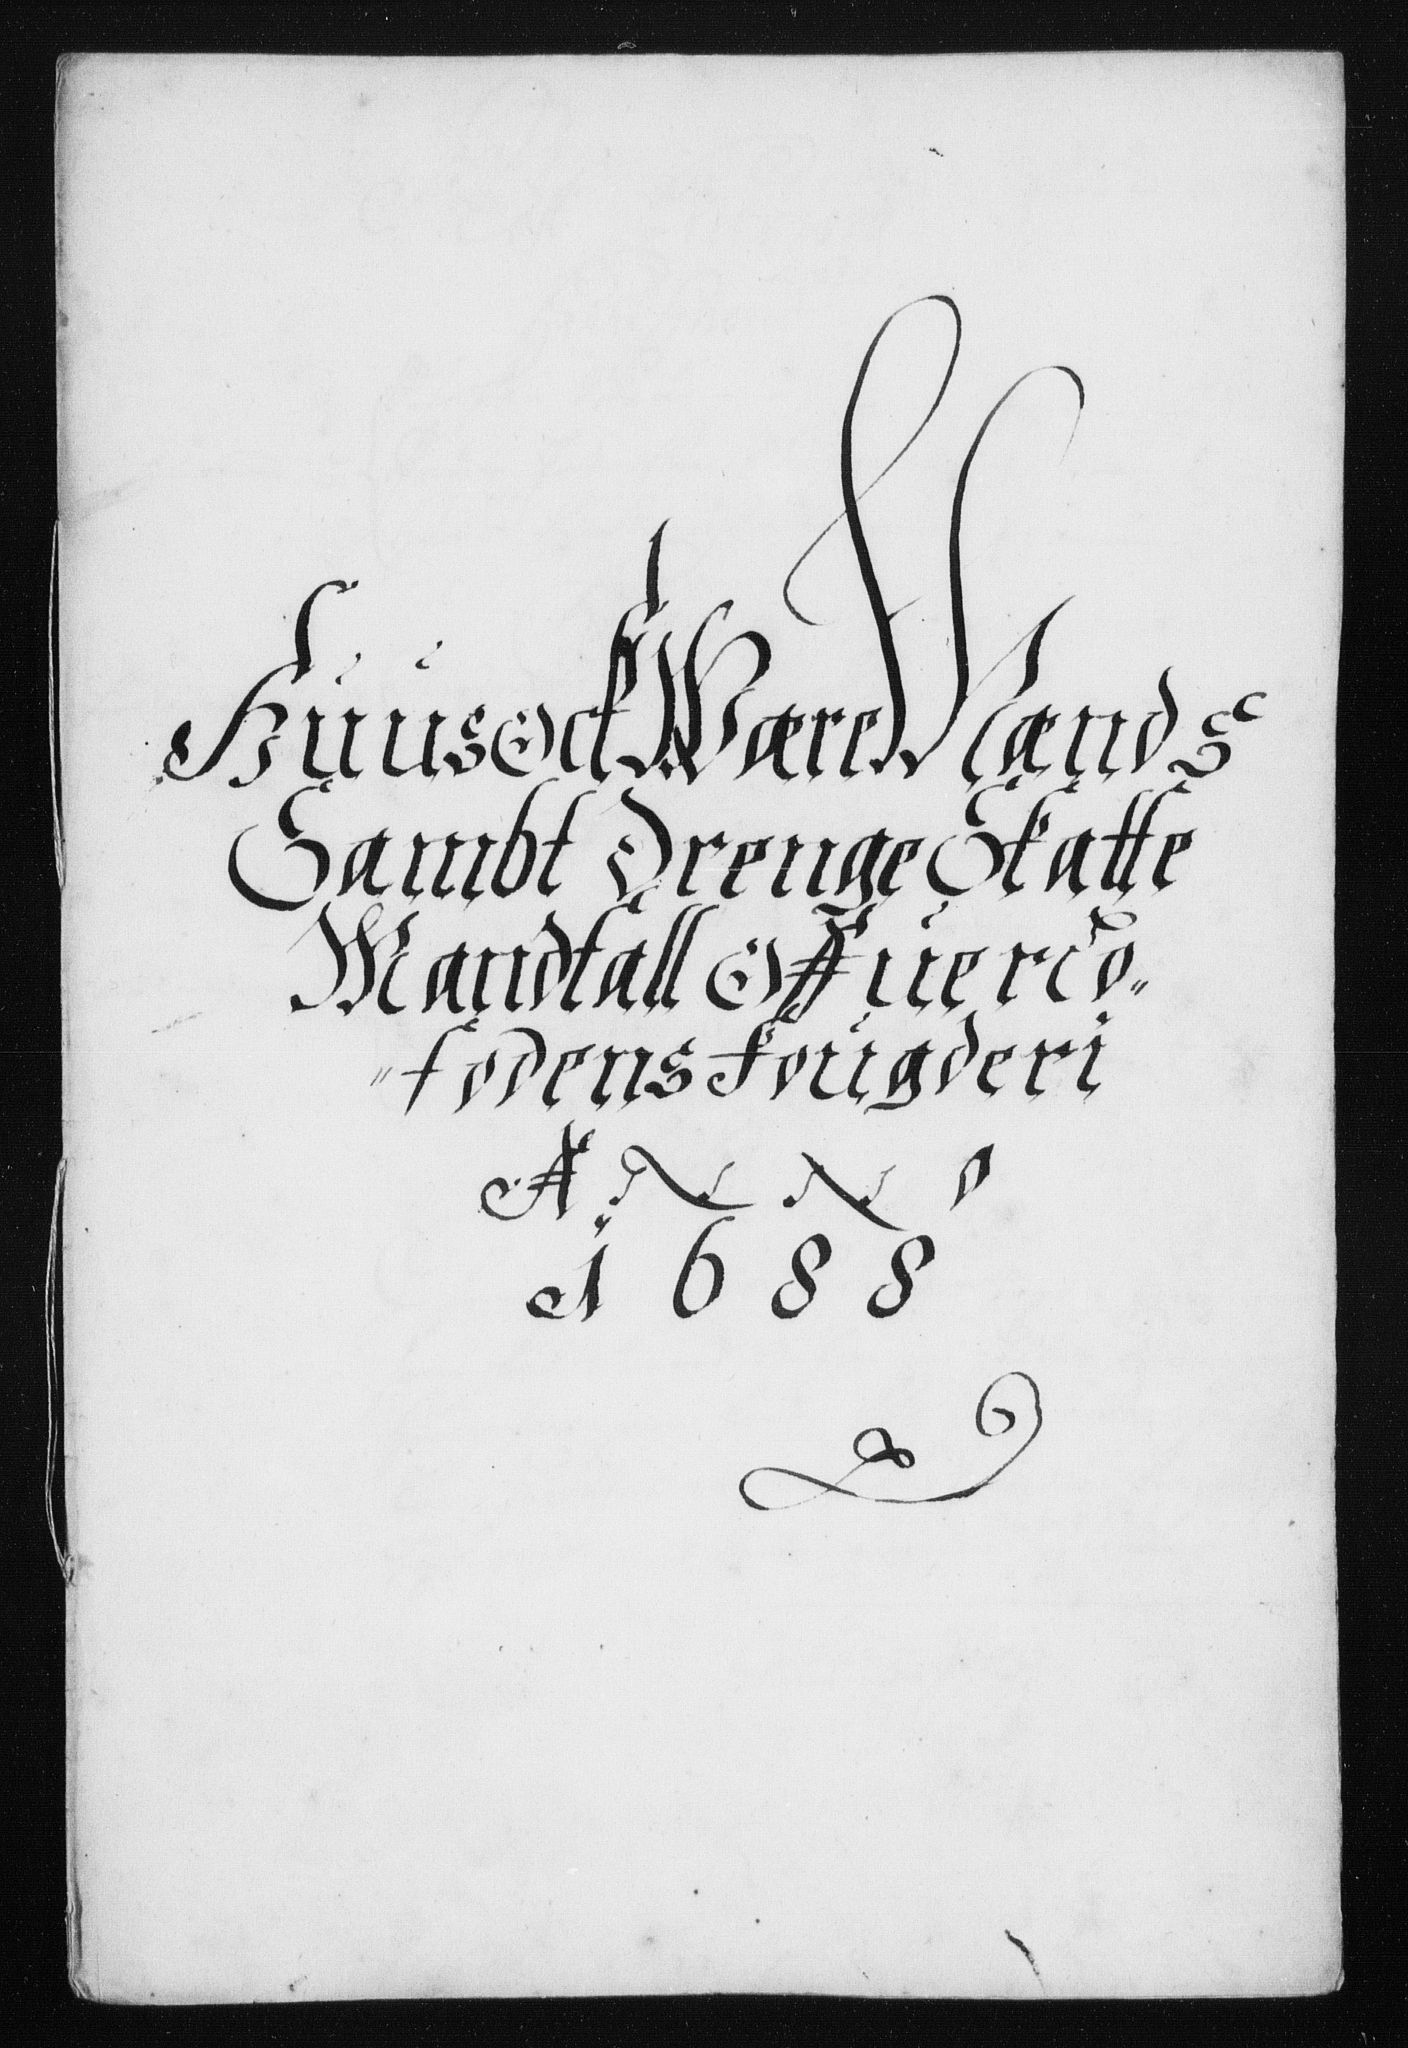 Huus Ock Wære Mænds
Sambt Drenge Skatte
Mandtall Offuer Lo„
„fodens Fougderi
ANNO
1688